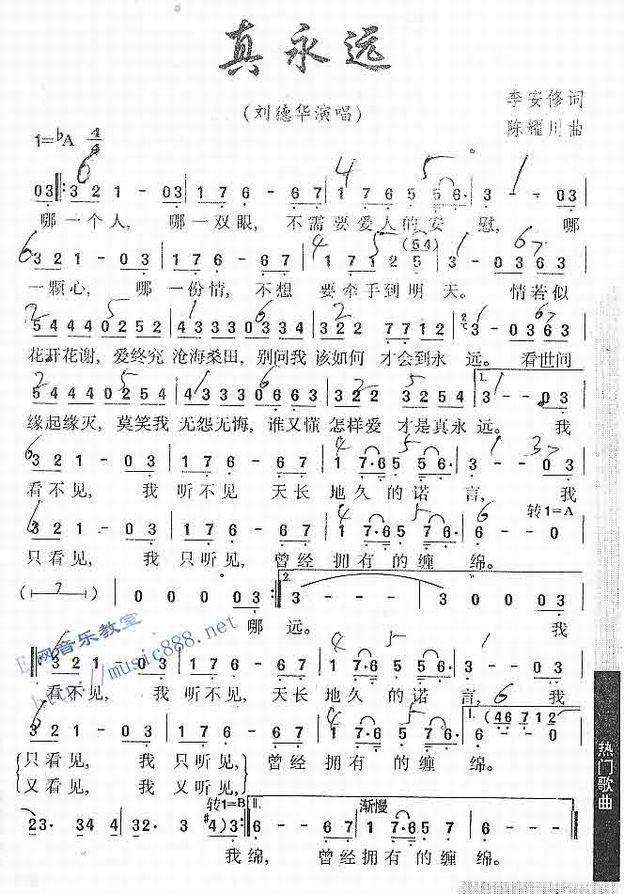 真永远
(刘德华演唱)
李安修词
陈耀川曲
1=♭A 4/4
6 4 5 1
03‖:3 2 1 - 03|1 7 6 - 67|1 7 6 5 5 6·|3 - - 03|
哪一个人, 哪一双眼, 不需要爱人的安慰, 哪
6 4 5 (54) 1 6 7
3 2 1 - 03|1 7 6 - 67|1 7 1 2 5|3 - 03 63|
一颗心, 哪一份情, 不想要牵手到明天。 情若似
2 5 1 6 2 1 6 7
5 4 4 4 0 2 5 2|4 3 3 3 0 3 3 4|3 2 2 7 7 1 2|3 - 03 63|
花开花谢, 爱终究沧海桑田, 别问我该如何才会到永远。 看世间
2 5 1 6 2 5 1
5 4 4 4 0 2 5 4|4 3 3 3 0 6 6 3|3 2 2 3 2 5 4|1. 3 - - 03|
缘起缘灭, 莫笑我无怨无悔, 谁又懂怎样爱才是真永远。 我
6 4 5 1 3
3 2 1 - 03|1 7 6 - 67|1 7·6 5 5 6·|3 - - 03|
看不见, 我听不见天长地久的诺言, 我
转1=A
6 4 5 6
3 2 1 - 03|1 7 6 - 67|1 7·6 5 7 6·|6 - - 0|
只看见, 我只听见, 曾经拥有的缠绵。
(7)|0 0 0 03:‖2. 3 - - -|3 0 0 03|
哪远。 我
E网音乐教室
http://music888.net
6 4 5 1
3 2 1 - 03|1 7 6 - 67|1 7·6 5 5 6·|3 - - 03|
看不见, 我听不见, 天长地久的诺言, 我
6 4 5 6
3 2 1 - 03|1 7 6 - 67|1 7·6 5 7 6·|1. (46 712 6 - - 0|
只看见, 我只听见, 曾经拥有的缠绵。
又看见, 我又听见,
转1=B 渐慢
23· 34 4|32· 3 #4)3:‖II. 6 - - 67|1 7·6 5 67|6 - - -‖
我绵, 曾经拥有的缠绵。
热门歌曲